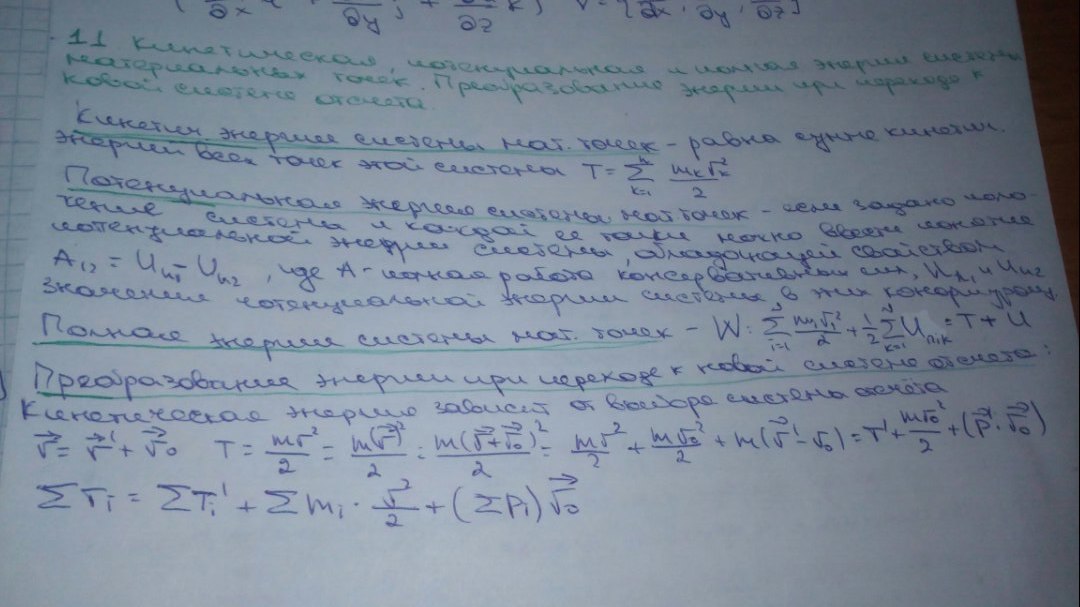 ∂x ∂y ∂z k) ∇ = [∂x, ∂y, ∂z]
11 Кинетическая, потенциальная и полная энергии системы
материальных точек. Преобразование энергии при переходе к
новой системе отсчета.
Кинетич энергия системы мат. точек - равна сумме кинетич.
энергий всех точек этой системы T = Σ_{k=1}^{n} m_k v_k²/2
Потенциальная энергия системы мат точек - если задано поло-
жение системы и каждой её точки можно ввести понятие
потенциальной энергии системы, обладающей свойством
A₁₂ = U_{п1} - U_{п2}, где A - полная работа консервативных сил, U_{п1} и U_{п2}
значения потенциальной энергии системы в этих конфигурац.
Полная энергия системы мат. точек - W = Σ_{i=1}^{N} m_i v_i²/2 + 1/2 Σ_{k=1}^{N} U_{п,k} = T + U
Преобразование энергии при переходе к новой системе отсчета:
Кинетическая энергия зависит от выбора системы отсчёта
v⃗ = v⃗' + v⃗₀ T = mv²/2 = m(v⃗)²/2 = m(v⃗+v⃗₀)²/2 = mv²/2 + mv₀²/2 + m(v⃗'·v₀) = T' + mv₀²/2 + (p⃗'·v⃗₀)
ΣT_i = ΣT_i' + Σm_i · v²/2 + (Σp_i) v⃗₀